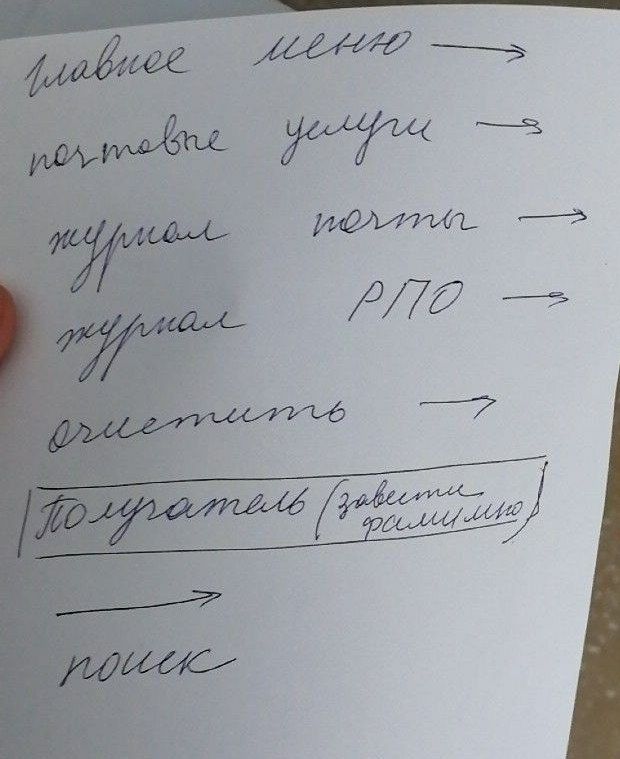 главное меню →
почтовые услуги →
журнал почты →
журнал РПО →
очистить →
Получатель (завести фамилию)
→
поиск